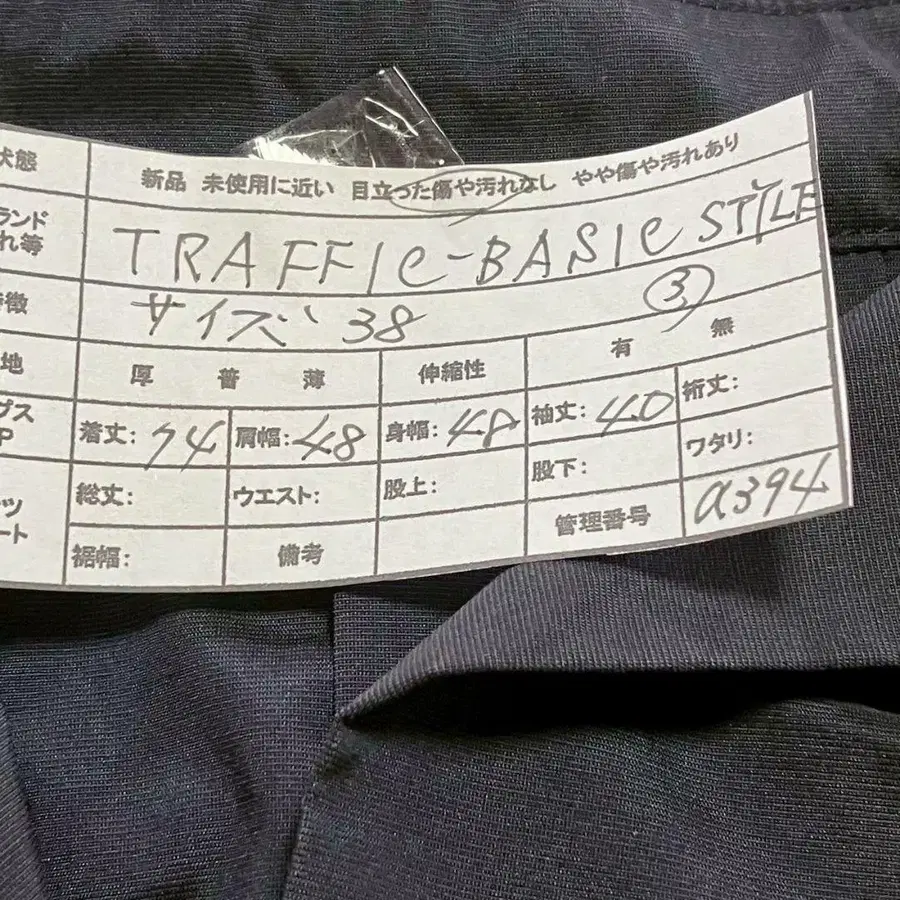 状態 新品 未使用に近い 目立った傷や汚れなし やや傷や汚れあり
ランド
れ等 TRAFFIC-BASIC STYLE
特徴 サイズ 38 ③
地 厚 普 薄 伸縮性 有 無
プス
P 着丈:74 肩幅:48 身幅:48 袖丈:40 裄丈:
総丈: ウエスト: 股上: 股下: ワタリ:
ツ
ート 裾幅: 備考 管理番号 a394